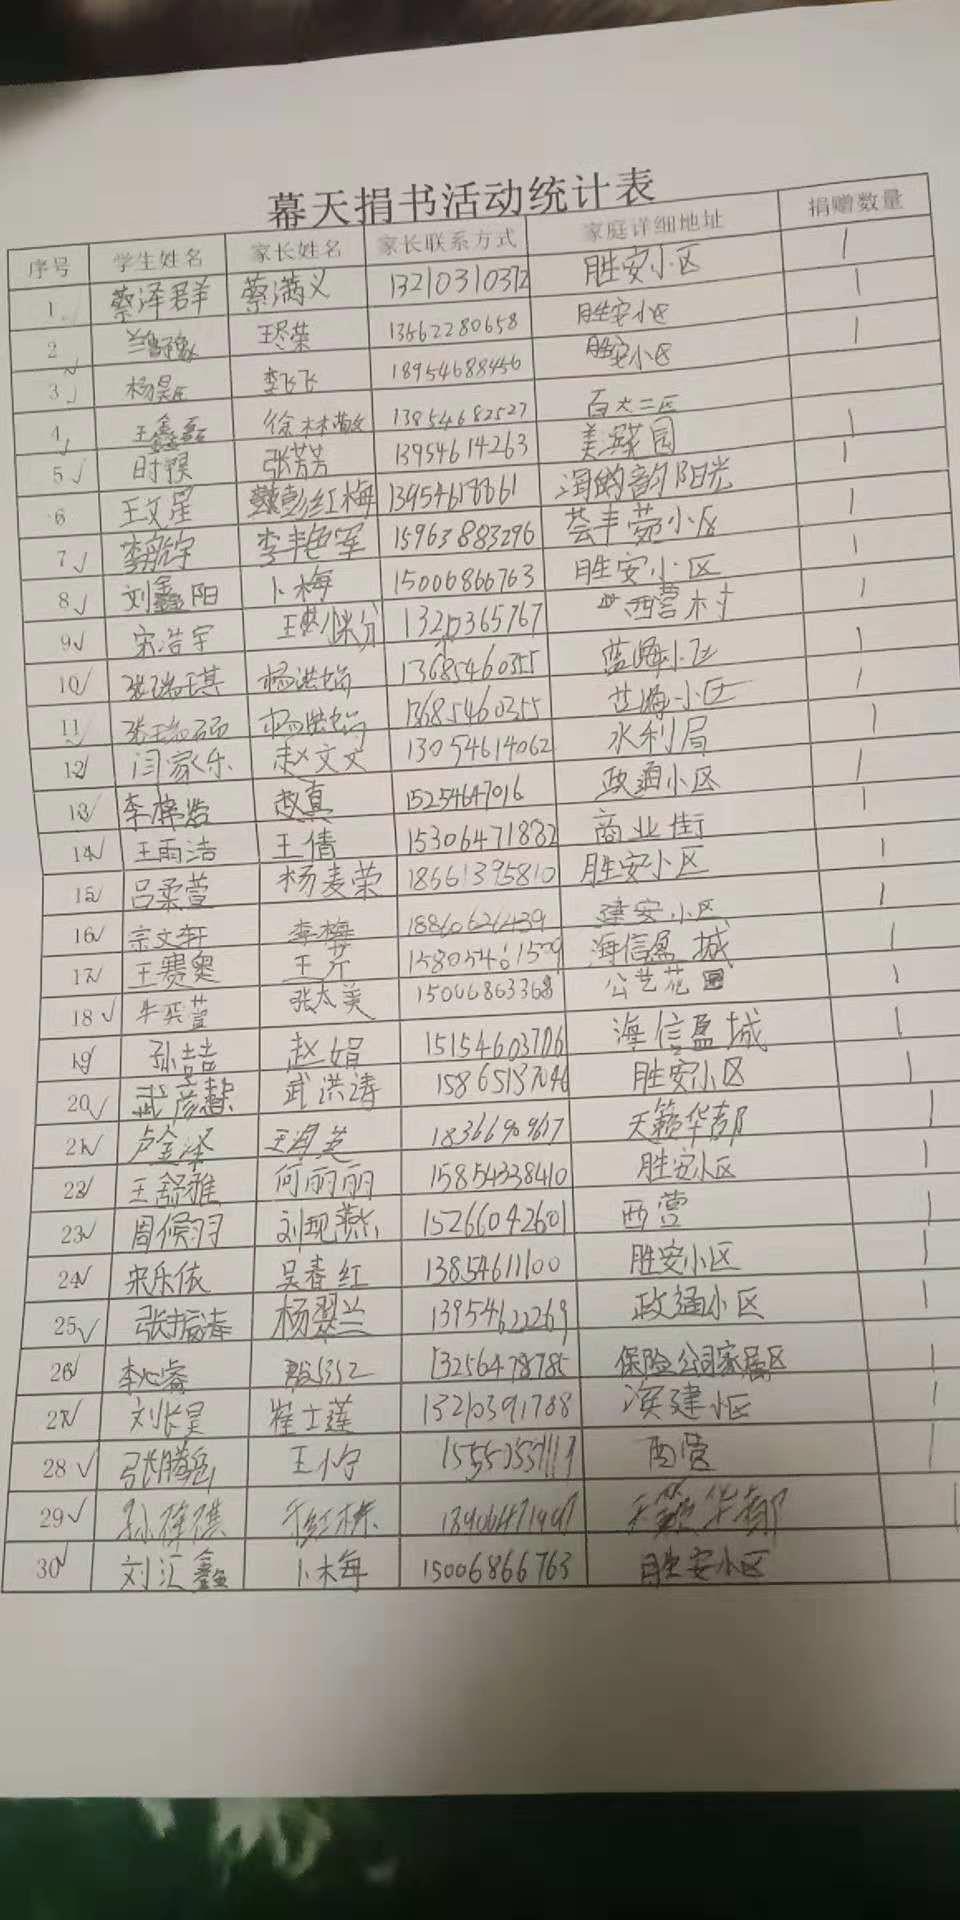 幕天捐书活动统计表
序号 学生姓名 家长姓名 家长联系方式 家庭详细地址 捐赠数量
1 蔡泽群 蔡满义 13210310312 胜安小区 1
2 13562280658 胜安小区 1
3 杨昊 李飞飞 18954688456 胜安小区 1
4 王鑫磊 徐林 13854682527 百大二区
5 时 张芳芳 13954614263 美 园 1
6 王文星 彭红梅 13954618861 阳光 1
7 李航宇 李丰军 15963883296 荟丰苑小区 1
8 刘鑫阳 卜梅 15006866763 胜安小区 1
9 宋浩宇 王 1321 365767 西营村 1
10 张瑞琪 杨洪娟 13685460355 小区 1
11 张瑞硕 杨洪娟 13685460355 小区 1
12 闫家乐 赵文文 13054614062 水利局 1
13 李梓浩 赵真 15254647016 政通小区 1
14 王雨浩 王倩 15306471882 商业街 1
15 吕柔萱 杨麦荣 18661395810 胜安小区 1
16 宗文轩 李梅 18860626439 建安小区 1
17 王赛奥 王芹 15805461509 海信盈城 1
18 牛奕萱 张太美 15006863368 公艺花园 1
19 孙喆 赵娟 15154603706 海信盈城 1
20 武彦慧 武洪涛 15865137046 胜安小区 1
21 卢金泽 王海英 18366909617 天籁华都 1
22 王舒雅 何丽丽 15854338410 胜安小区 1
23 周候羽 刘现燕 15266042601 西营 1
24 宋乐依 吴春红 13854611100 胜安小区 1
25 张振涛 杨翠兰 13954622269 政通小区 1
26 李心睿 13256478785 保险公司家属区 1
27 刘长昊 崔士莲 13210391788 滨建小区 1
28 张腾 王小宁 西营 1
29 孙 天籁华都 1
30 刘汇鑫 卜梅 15006866763 胜安小区